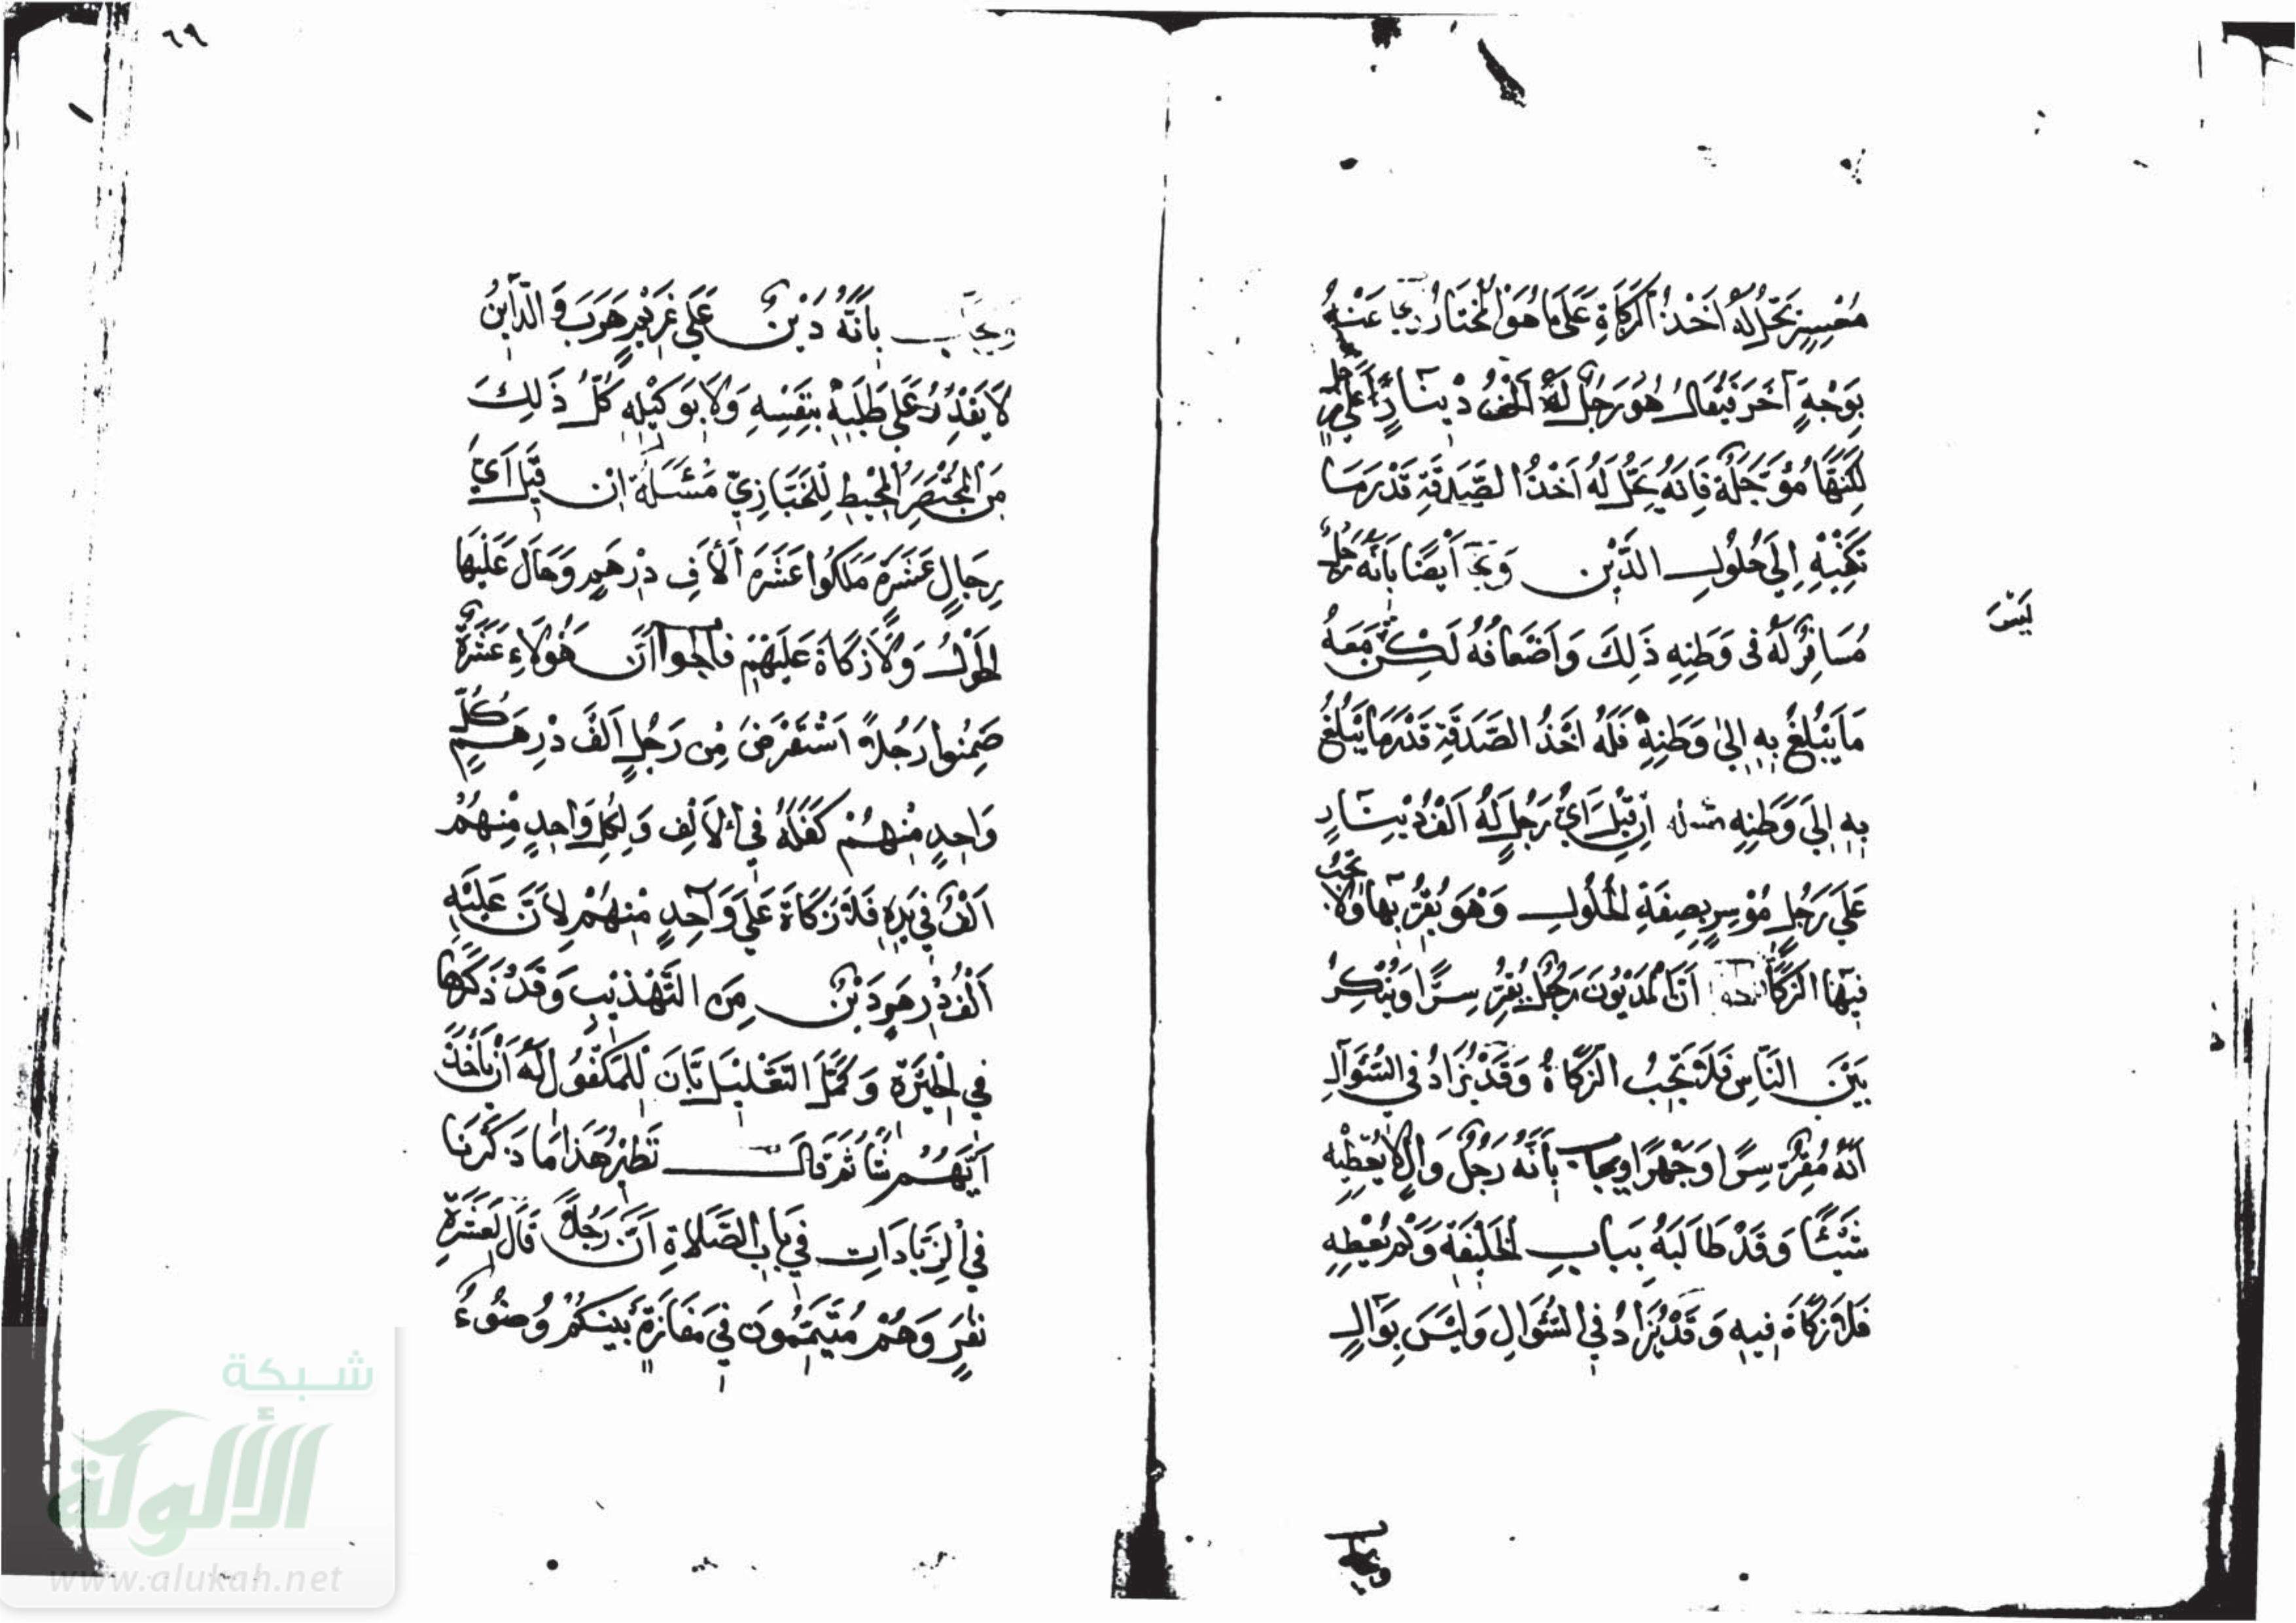 مُعْسِرٍ تَحِلُّ لَهُ أَخْذُ الزَّكَاةِ عَلَى مَا هُوَ الْمُخْتَارُ وَيُجَابُ عَنْهُ
بِوَجْهٍ آخَرَ فَيُقَالُ هُوَ رَجُلٌ لَهُ أَلْفُ دِينَارٍ عَلَى رَجُلٍ
لَكِنَّهَا مُؤَجَّلَةٌ فَإِنَّهُ يَحِلُّ لَهُ أَخْذُ الصَّدَقَةِ قَدْرَ مَا
تَكْفِيهِ إِلَى حُلُولِ الدَّيْنِ وَيُجَابُ أَيْضًا بِأَنَّهُ رَجُلٌ
لَيْسَ
مُسَافِرٌ لَهُ فِي وَطَنِهِ ذَلِكَ وَأَضْعَافُهُ لَكِنْ مَعَهُ
مَا يَبْلُغُ بِهِ إِلَى وَطَنِهِ فَلَهُ أَخْذُ الصَّدَقَةِ قَدْرَ مَا يَبْلُغُ
بِهِ إِلَى وَطَنِهِ مسئلة إِنْ قِيلَ أَيُّ رَجُلٍ لَهُ أَلْفُ دِينَارٍ
عَلَى رَجُلٍ مُوْسِرٍ بِصِفَةِ الْحُلُولِ وَهُوَ يُقِرُّ بِهَا وَلَا تَجِبُ
فِيهَا الزَّكَاةُ أَنَّ الْمَدْيُونَ رَجُلٌ يُقِرُّ سِرًّا وَيُنْكِرُ
بَيْنَ النَّاسِ فَلَا تَجِبُ الزَّكَاةُ وَقَدْ يُزَادُ فِي السُّؤَالِ
أَنَّهُ مُقِرٌّ سِرًّا وَجَهْرًا ويجاب بِأَنَّهُ رَجُلٌ وَالٍ لَا يُعْطِيهِ
شَيْئًا وَقَدْ طَالَبَهُ بِبَابِ الْخَلِيفَةِ وَلَمْ يُعْطِهِ
فَلَا زَكَاةَ فِيهِ وَقَدْ يُزَادُ فِي السُّؤَالِ وَلَيْسَ بِوَالٍ
ويجاب
٦٩
ويجاب بِأَنَّهُ دَيْنٌ عَلَى غَرِيمٍ هَرَبَ وَالدَّائِنُ
لَا يَقْدِرُ عَلَى طَلَبِهِ بِنَفْسِهِ وَلَا بِوَكِيلِهِ كُلُّ ذَلِكَ
مِنَ الْمُخْتَصَرِ الْمُحِيطِ لِلْخَبَّازِيِّ مَسْئَلَةٌ إِنْ قِيلَ أَيُّ
رِجَالٍ عَشَرَةٍ مَلَكُوا عَشَرَةَ أَلَافِ دِرْهَمٍ وَحَالَ عَلَيْهَا
الْحَوْلُ وَلَا زَكَاةَ عَلَيْهِمْ فالجواب أَنَّ هَؤُلَاءِ عَشَرَةٌ
ضَمِنُوا رَجُلًا اسْتَقْرَضَ مِنْ رَجُلٍ أَلْفَ دِرْهَمٍ كُلُّ
وَاحِدٍ مِنْهُمْ كَفَلَهُ فِي الْأَلْفِ وَلِكُلِّ وَاحِدٍ مِنْهُمْ
أَلْفٌ فِي يَدِهِ فَلَا زَكَاةَ عَلَى وَاحِدٍ مِنْهُمْ لِأَنَّ عَلَيْهِ
أَلْفُ دِرْهَمٍ دَيْنٌ مِنَ التَّهْذِيبِ وَقَدْ ذَكَرَهَا
فِي الْحِيْرَةِ وَكَمَّلَ التَّعْلِيلَ بِأَنَّ لِلْمَكْفُولِ لَهُ أَنْ يَأْخُذَ
أَيَّهُمْ شَاءَ ثُمَّ قَالَ نَظِيرُ هَذَا مَا ذَكَرْنَا
فِي الزِّيَادَاتِ فِي بَابِ الصَّلَاةِ أَنَّ رَجُلًا قَالَ لِعَشَرَةِ
نَفَرٍ وَهُمْ مُتَيَمِّمُونَ فِي مَفَازَةٍ بَيْنَكُمْ وُضُوءُ
شبكة
الألوكة
www.alukah.net